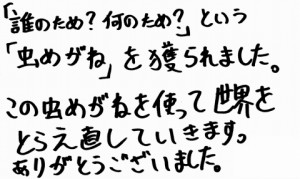 「誰のため？何のため？」という
「虫めがね」を獲られました。
この虫めがねを使って世界を
とらえ直していきます。
ありがとうございました。